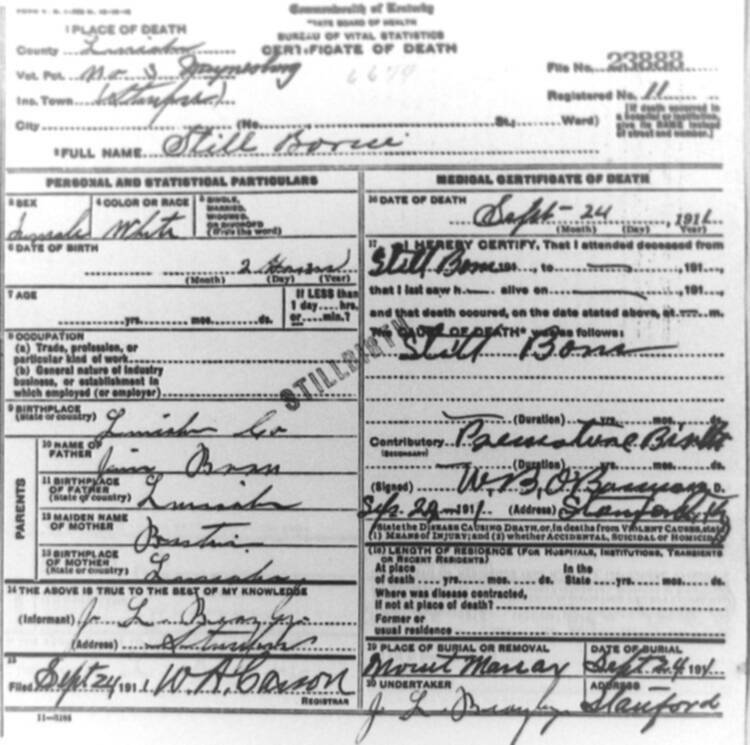 Commonwealth of Kentucky
STATE BOARD OF HEALTH
BUREAU OF VITAL STATISTICS
CERTIFICATE OF DEATH
1 PLACE OF DEATH
County Lincoln
Vot. Pct. No 3 Waynesburg
Ins. Town (Stanford)
City (No. St.; Ward)
File No. 23883
Registered No. 11
[If death occurred in
a hospital or institution,
give its NAME instead
of street and number.]
2 FULL NAME Still Borne
PERSONAL AND STATISTICAL PARTICULARS
3 SEX
Female
4 COLOR OR RACE
White
5 SINGLE,
MARRIED,
WIDOWED,
OR DIVORCED
(Give the word)
6 DATE OF BIRTH
2
(Month) (Day) (Year)
7 AGE
yrs. mos. ds.
If LESS than
1 day....hrs.
or....min.?
8 OCCUPATION
(a) Trade, profession, or
particular kind of work
(b) General nature of industry
business, or establishment in
which employed (or employer)
9 BIRTHPLACE
(State or country) Lincoln Co
PARENTS
10 NAME OF
FATHER
11 BIRTHPLACE
OF FATHER
(State or country) Lincoln
12 MAIDEN NAME
OF MOTHER
13 BIRTHPLACE
OF MOTHER
(State or country) Lincoln
14 THE ABOVE IS TRUE TO THE BEST OF MY KNOWLEDGE
(Informant) J. L. Beazley
(Address) Stanford
15
Filed Sept 24 1911 W. A. Carson
REGISTRAR
11-3184
STILLBIRTH
MEDICAL CERTIFICATE OF DEATH
16 DATE OF DEATH
Sept 24, 1911
(Month) (Day) (Year)
17 I HEREBY CERTIFY, That I attended deceased from
Still Born 191 , to , 191
that I last saw h alive on , 191
and that death occured, on the date stated above, at m.
The CAUSE OF DEATH* was as follows:
Still Born
(Duration) yrs. mos. ds.
Contributory Premature Birth
(SECONDARY)
(Duration) yrs. mos. ds.
(Signed) W. B. O'Bannon M. D.
1911. (Address) Stanford Ky
*State the DISEASE CAUSING DEATH, or, in deaths from VIOLENT CAUSES, state
(1) MEANS OF INJURY; and (2) whether ACCIDENTAL, SUICIDAL or HOMICIDAL
(18) LENGTH OF RESIDENCE (FOR HOSPITALS, INSTITUTIONS, TRANSIENTS
OR RECENT RESIDENTS)
At place
of death yrs. mos. ds.
In the
State yrs. mos. ds.
Where was disease contracted,
If not at place of death?
Former or
usual residence
19 PLACE OF BURIAL OR REMOVAL
DATE OF BURIAL
Sept 24 1911
20 UNDERTAKER
J. L. Beazley
ADDRESS
Stanford